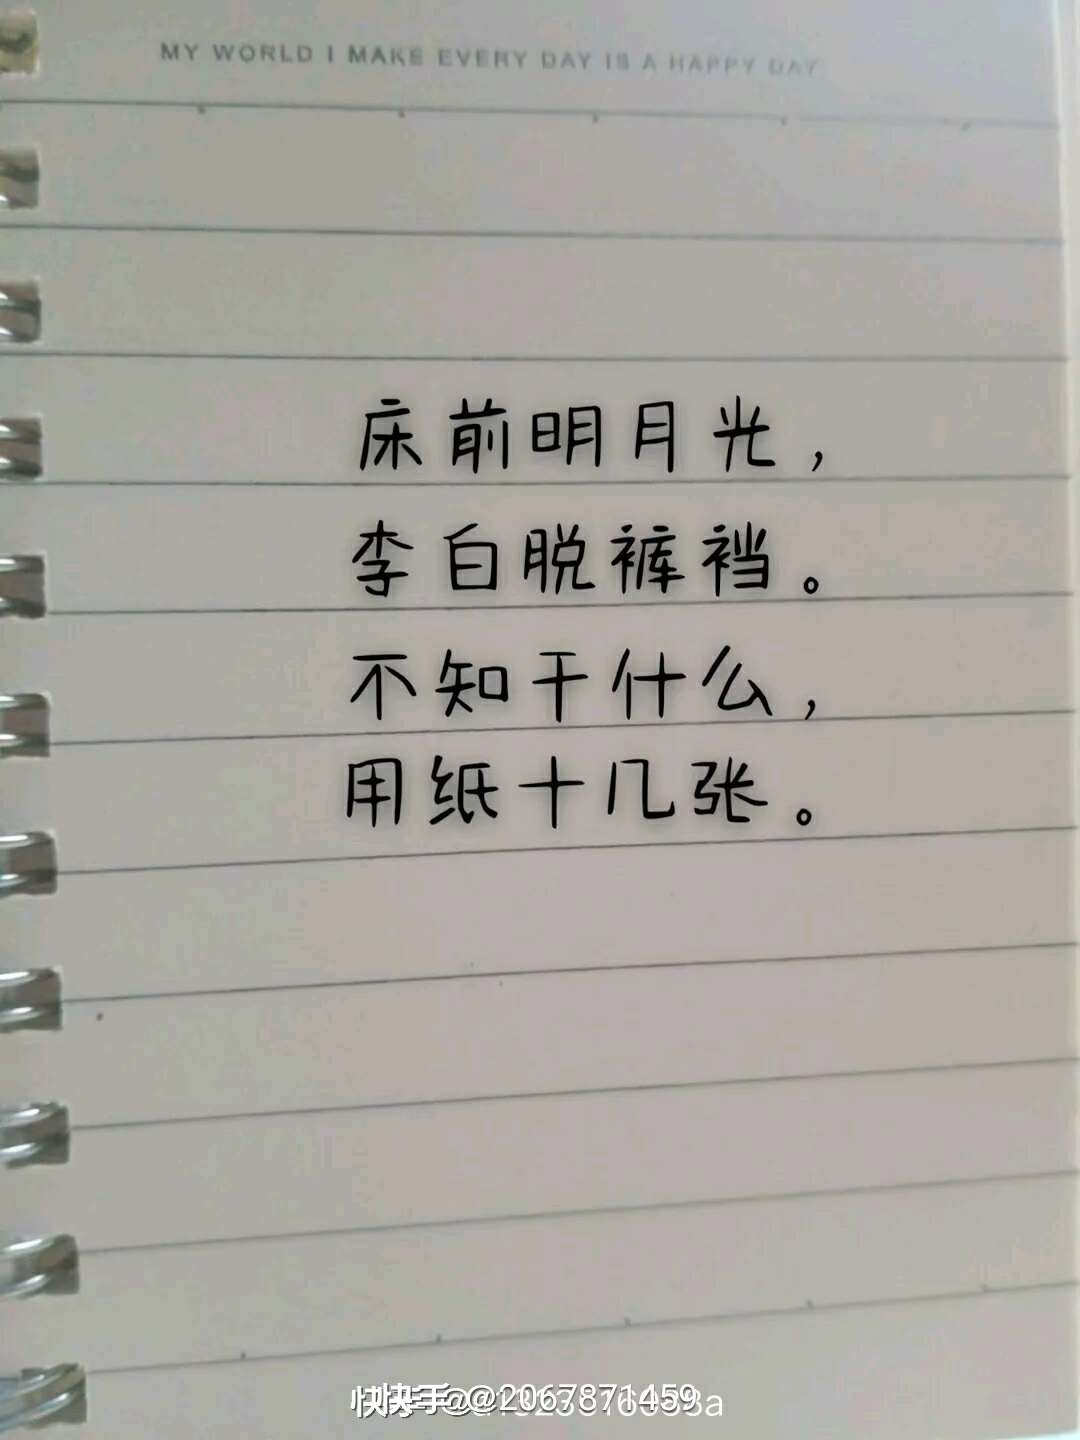 MY WORLD I MAKE EVERY DAY IS A HAPPY DAY
床前明月光，
李白脱裤裆。
不知干什么，
用纸十几张。
快手 @2067871459